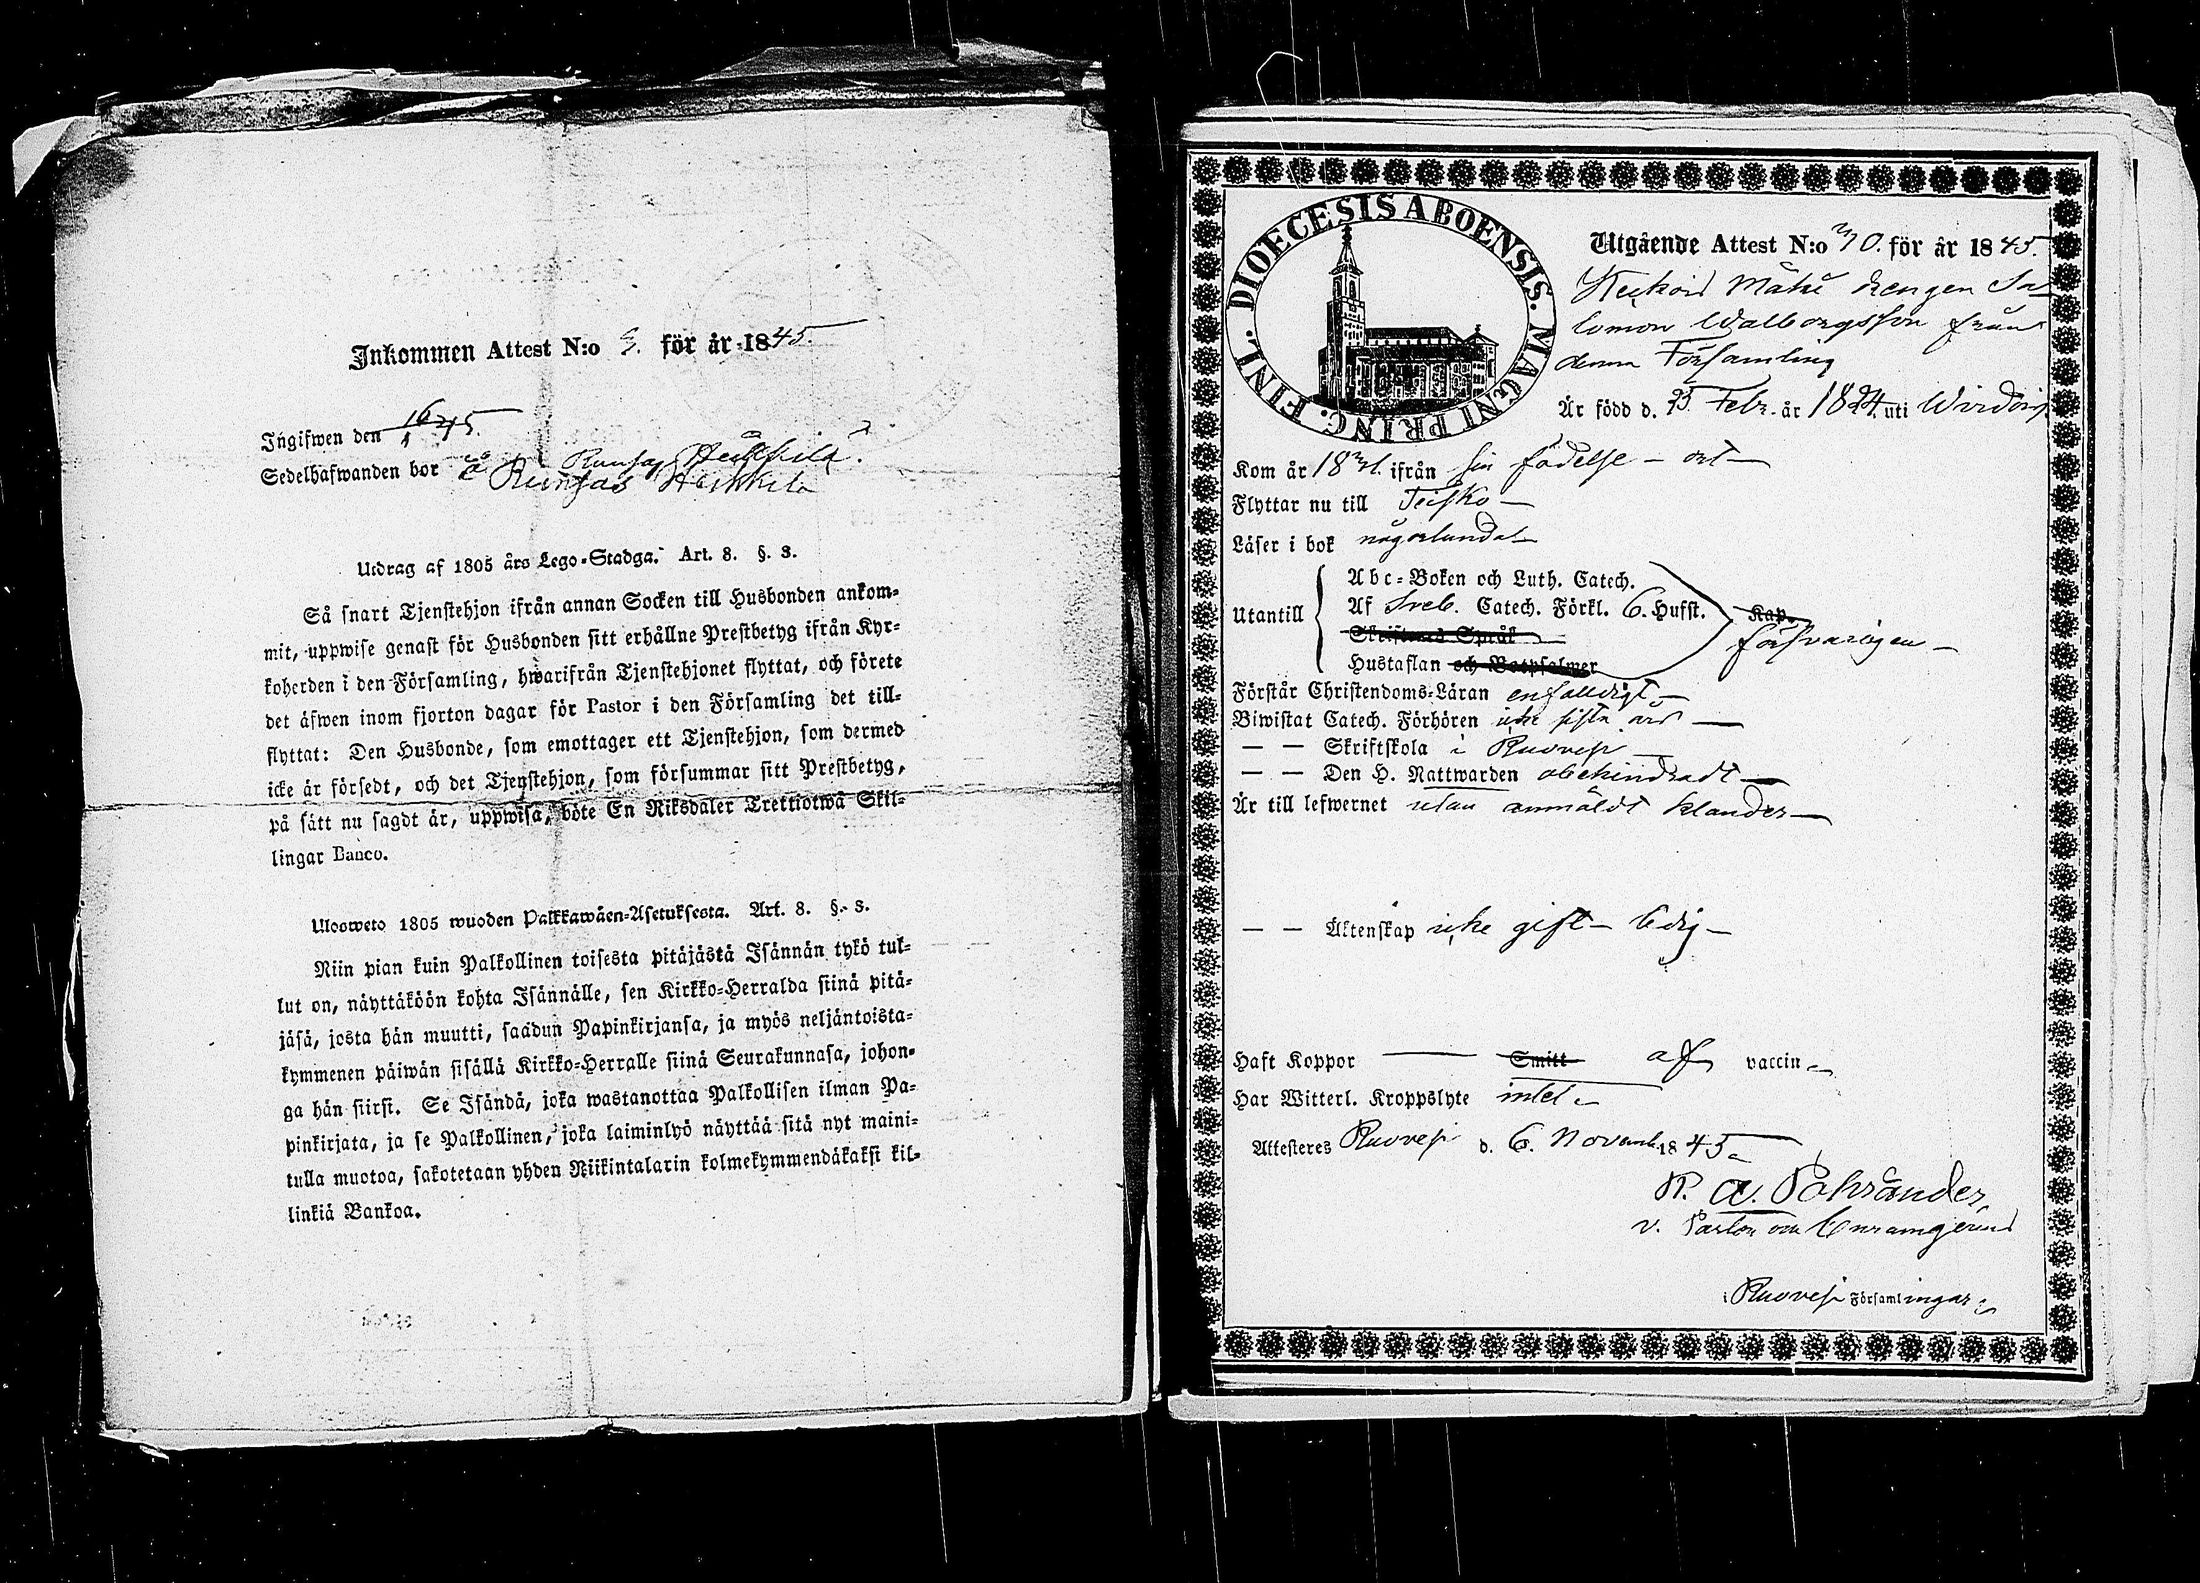 Inkommen Attest N:o 3. för år 1845.
Ingifwen den 16/11 45.
Sedelhafwanden bor Runsas Heikkilä.
å Runsas Heikkilä
Utdrag af 1805 års Lego-Stadga. Art. 8. §. 3.
Så snart Tjenstehjon ifrån annan Socken till Husbonden ankom-
mit, uppwise genast för Husbonden sitt erhållne Prestbetyg ifrån Kyr-
koherden i den Församling, hwarifrån Tjenstehjonet flyttat, och förete
det äfwen inom fjorton dagar för Pastor i den Församling det till-
flyttat: Den Husbonde, som emottager ett Tjenstehjon, som dermed
icke är försedt, och det Tjenstehjon, som försummar sitt Prestbetyg,
på sätt nu sagdt är, uppwisa, böte En Riksdaler Trettiotwå Skil-
lingar Banco.
Ulosweto 1805 wuoden Palkkawäen-Asetuksesta. Art. 8. §. 3.
Niin pian kuin Palkollinen toisesta pitäjästä Isännän tykö tul-
lut on, näyttäköön kohta Isännälle, sen Kirkko-Herralda siinä pitä-
jäsä, josta hän muutti, saadun Papinkirjansa, ja myös neljäntoista-
kymmenen päiwän sisällä Kirkko-Herralle siinä Seurakunnasa, johon-
ga hän siirsi. Se Isändä, joka wastanottaa Palkollisen ilman Pa-
pinkirjata, ja se Palkollinen, joka laiminlyö näyttää sitä nyt maini-
tulla muotoa, sakotetaan yhden Riikintalarin kolmekymmendäkaksi kil-
linkiä Bankoa.
DIOECESIS ABOENSIS. MAGNI PRINC. FINL.
Utgående Attest N:o 70. för år 1845.
Drengen Sa-
lomon Walborgsson från
denna Församling
Är född d. 25 Febr. år 1824 uti Wirdois
Kom år ifrån sin födelse-ort
Flyttar nu till Teisko
Läser i bok någorlunda
Abc-Boken och Luth. Catech.
Utantill Af Sveb. Catech. Förkl. 6. Hufst. Kap.
Skriftens Språk försvarligen
Hustaflan och Botpsalmer
Förstår Christendoms-Läran enfalldigt
Biwistat Catech. Förhören icke sista år
— — Skriftskola i Ruovesi
— — Den H. Nattwarden obehindradt
Är till lefwernet utan anmäldt klander
— — Äktenskap icke gift - ledig
Haft Koppor — Smitt af vaccin
Har Witterl. Kroppslyte intet
Attesteres Ruovesi d. 6. Novemb. 1845
A. Pohrander
v. Pastor
i Ruovesi Församlingar